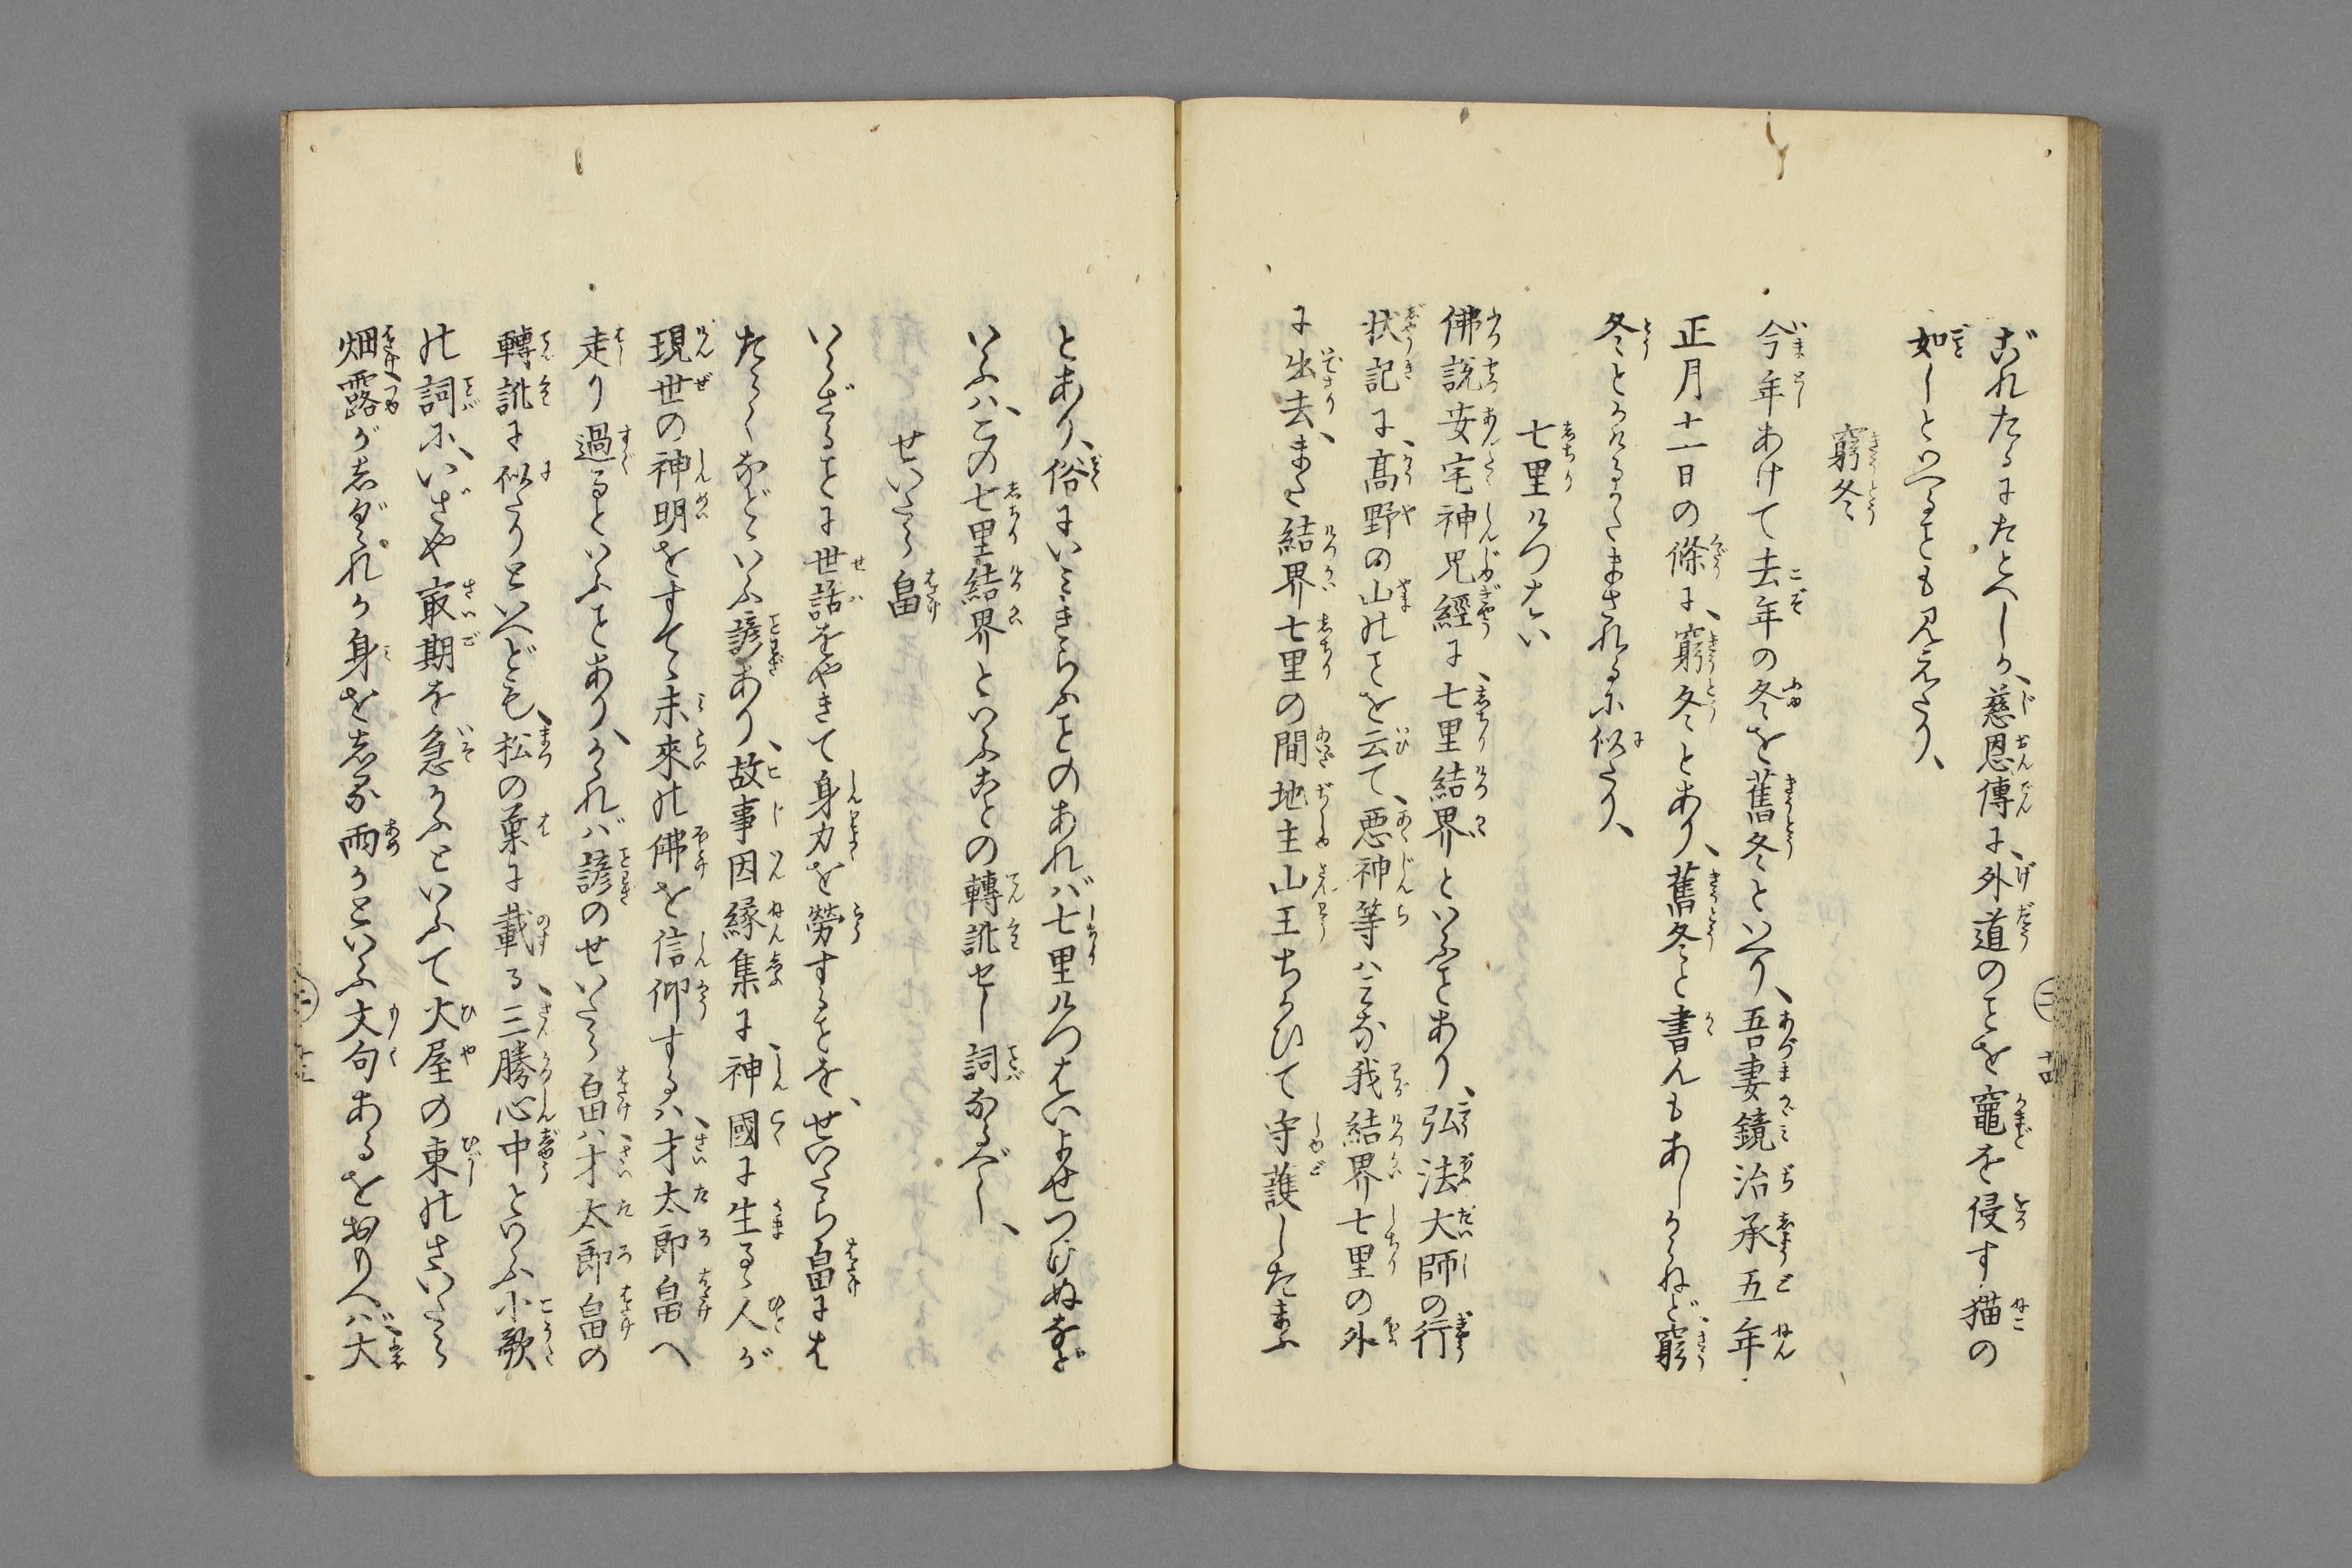 ざれたるにたとへしか、慈恩傳に、外道のことを竈を侵す猫の
如しといへることも見えたり、
窮冬
今年あけて去年の冬を舊冬といへり、吾妻鏡治承五年
正月十一日の條に、窮冬とあり、舊冬と書んもあしからねど、窮
冬とかけるかたまされるに似たり、
七里けつはい
佛説安宅神呪經に、七里結界といふことあり、弘法大師の行
状記に、高野の山のことを云て、悪神等ハミな我結界七里の外
に出去、また結界七里の間地主山王ちかひて守護したまふ
とあり、俗にいミきらふことのあれバ七里けつはいよせつけぬなど
いふハ、この七里結界といふことの轉訛せし詞なるべし、
せいたら畠
いらざることに世話をやきて身力を勞することを、せいたら畠には
たらくなどゝいふ諺あり、故事因縁集に神國に生るゝ人が
現世の神明をすてゝ未來の佛を信仰するハ、才太郎畠へ
走り過るといふことあり、かゝれバ諺のせいたら畠ハ、才太郎畠の
轉訛に似たりといへども、松の葉に載る、三勝心中といふ小歌
の詞に、いざや最期を急かふといふて火屋の東のさいたら
畑露がしぐれか身をしる雨かといふ文句あるをおもへバ、大
二 十四
二 十五